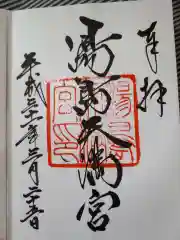 奉拝
湯島天満宮
平成三十一年二月二十五日